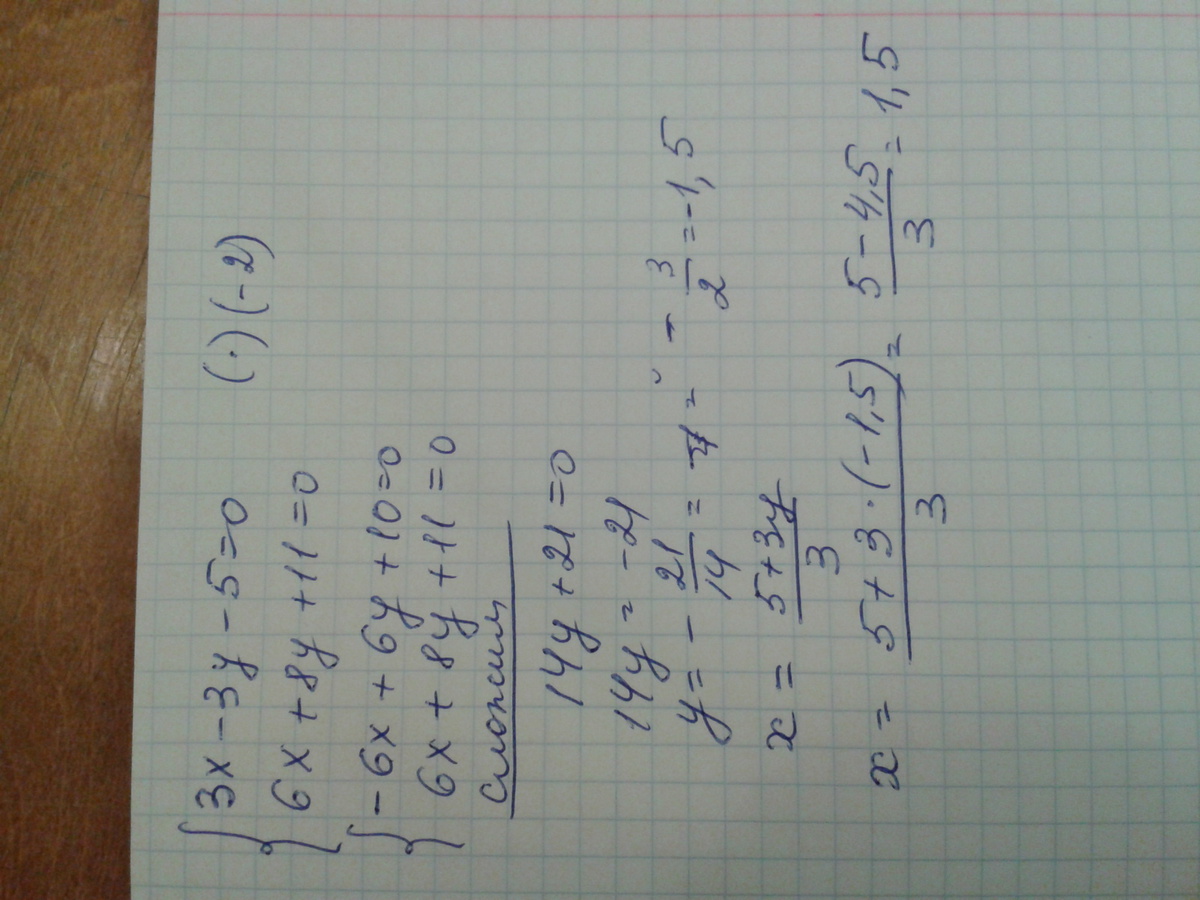 3x - 3y - 5 = 0 (·)(-2)
6x + 8y + 11 = 0
-6x + 6y + 10 = 0
6x + 8y + 11 = 0
сложим
14y + 21 = 0
14y = -21
y = - 21/14 = = - 3/2 = -1,5
x = (5 + 3y)/3
x = (5 + 3 · (-1,5))/3 = (5 - 4,5)/3 = 1,5